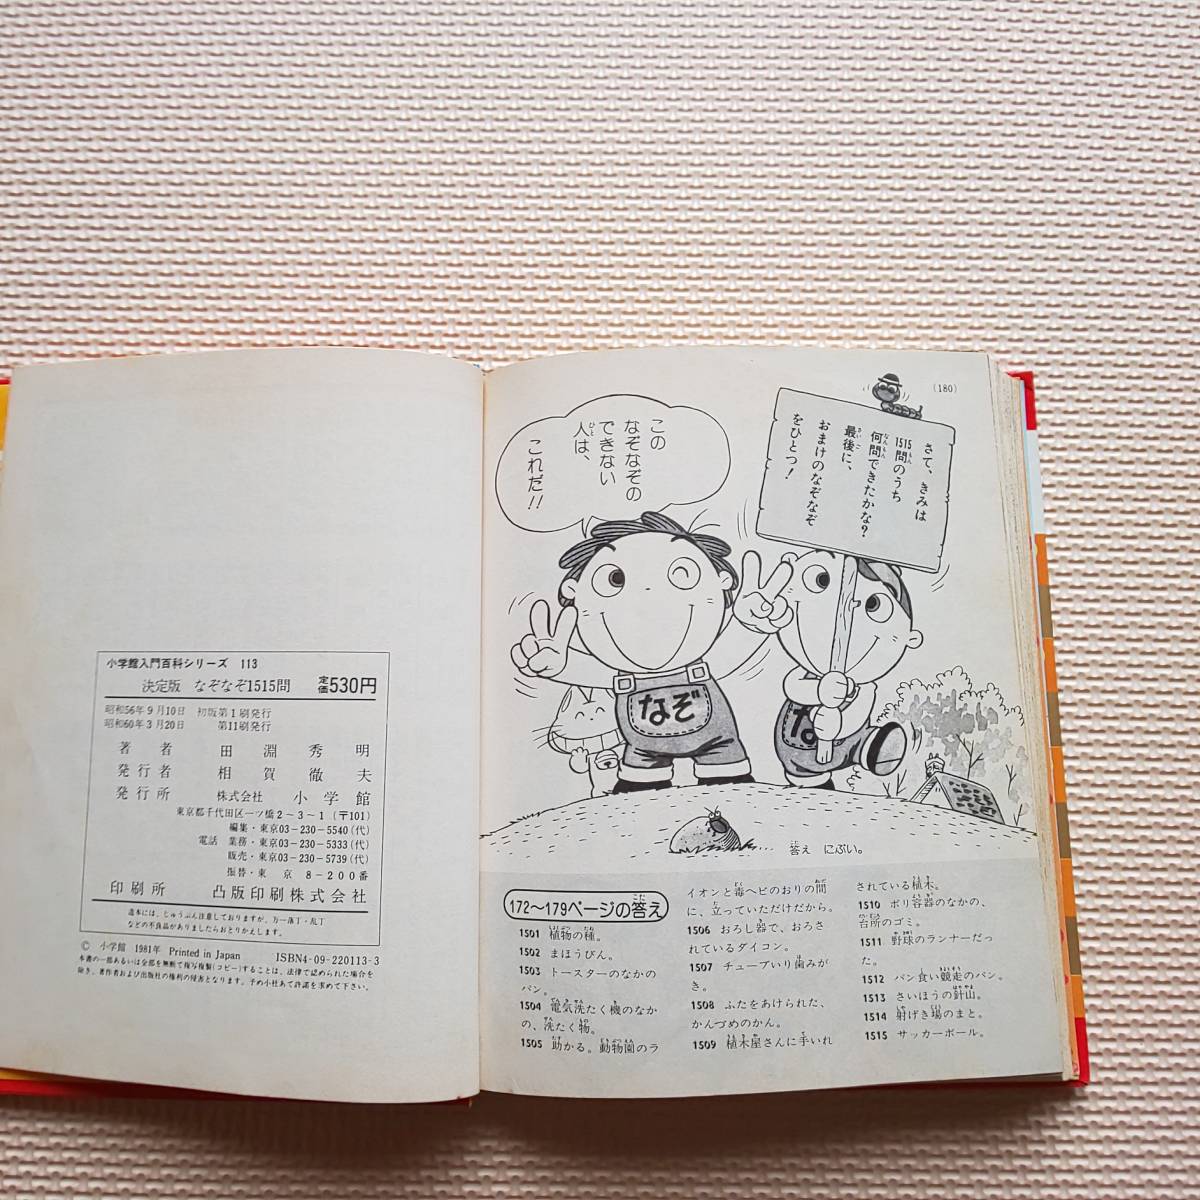 小学館入門百科シリーズ 113
決定版 なぞなぞ1515問 定価530円
昭和56年9月10日 初版第1刷発行
昭和60年3月20日 第11刷発行
著者 田淵秀明
発行者 相賀徹夫
発行所 株式会社 小学館
東京都千代田区一ツ橋2-3-1(〒101)
編集・東京03-230-5540(代)
電話 業務・東京03-230-5333(代)
販売・東京03-230-5739(代)
振替・東京 8-200番
印刷所 凸版印刷株式会社
造本には、じゅうぶん注意しておりますが、万一落丁・乱丁
などの不良品がありましたらおとりかえします。
© 小学館 1981年 Printed in Japan ISBN4-09-220113-3
本書の一部あるいは全部を無断で複写複製(コピー)することは、法律で認められた場合を
除き、著作者および出版社の権利の侵害となります。予め小社あて許諾を求めて下さい。
(180)
さて、きみは
1515問のうち
何問できたかな?
最後に、
おまけのなぞなぞ
をひとつ!
この
なぞなぞの
できない
人は、
これだ!!
なぞ
な
答え にぶい。
172〜179ページの答え
1501 植物の種。
1502 まほうびん。
1503 トースターのなかの
パン。
1504 電気洗たく機のなか
の、洗たく物。
1505 助かる。動物園のラ
イオンと毒ヘビのおりの間
に、立っていただけだから。
1506 おろし器で、おろさ
れているダイコン。
1507 チューブいり歯みが
き。
1508 ふたをあけられた、
かんづめのかん。
1509 植木屋さんに手いれ
されている植木。
1510 ポリ容器のなかの、
台所のゴミ。
1511 野球のランナーだっ
た。
1512 パン食い競走のパン。
1513 さいほうの針山。
1514 射げき場のまと。
1515 サッカーボール。